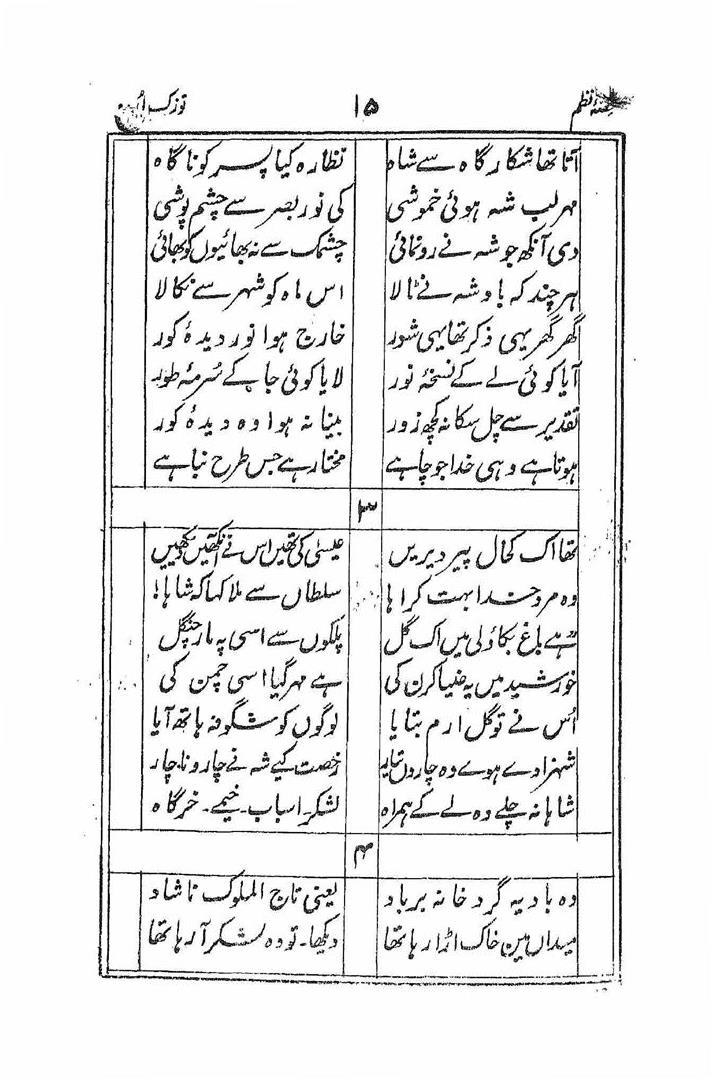 حصۂ نظم ۱۵ توزک
آتا تھا شکار گاہ سے شاہ نظارہ کیا پسر کو ناگاہ
مہر لب شہ ہوئی خموشی کی نور بصر سے چشم پوشی
دی آنکھ جو شہ نے رونمائی چشمک سے نہ بھائیوں کو بھائی
ہر چند کہ باوشہ نے ٹالا اس ماہ کو شہر سے نکالا
گھر گھر یہی ذکر تھا یہی شور خارج ہوا نور دیدۂ کور
آیا کوئی لے کے نسخۂ نور لایا کوئی جا کے سُرمۂ طور
تقدیر سے چل سکا نہ کچھ زور بینا نہ ہوا وہ دیدۂ کور
ہوتا ہے وہی خدا جو چاہے مختار ہے جس طرح نباہے
۳
تھا اک کحال پیر دیریں عیسیٰ کی تھیں اس نے آنکھیں دیکھیں
وہ مرد خدا بہت کراہا سلطاں سے ملا کہا کہ شاہا!
ہے باغ بکاؤلی میں اک گل پلکوں سے اسی پہ مار چنگل
خورشید میں یہ ضیا کرن کی ہے مہر گیا اسی چمن کی
اُس نے تو گل ارم بتایا لوگوں کو شگوفہ ہاتھ آیا
شہزادے ہوے وہ چاروں تیار رخصت کیے شہ نے چار و ناچار
شاہانہ چلے وہ لے کے ہمراہ لشکر۔ اسباب۔ خیمے۔ خرگاہ
۴
وہ بادیہ گرد خانہ برباد یعنی تاج الملوک ناشاد
میداں میں خاک اڑا رہا تھا دیکھا۔ تو وہ لشکر آ رہا تھا